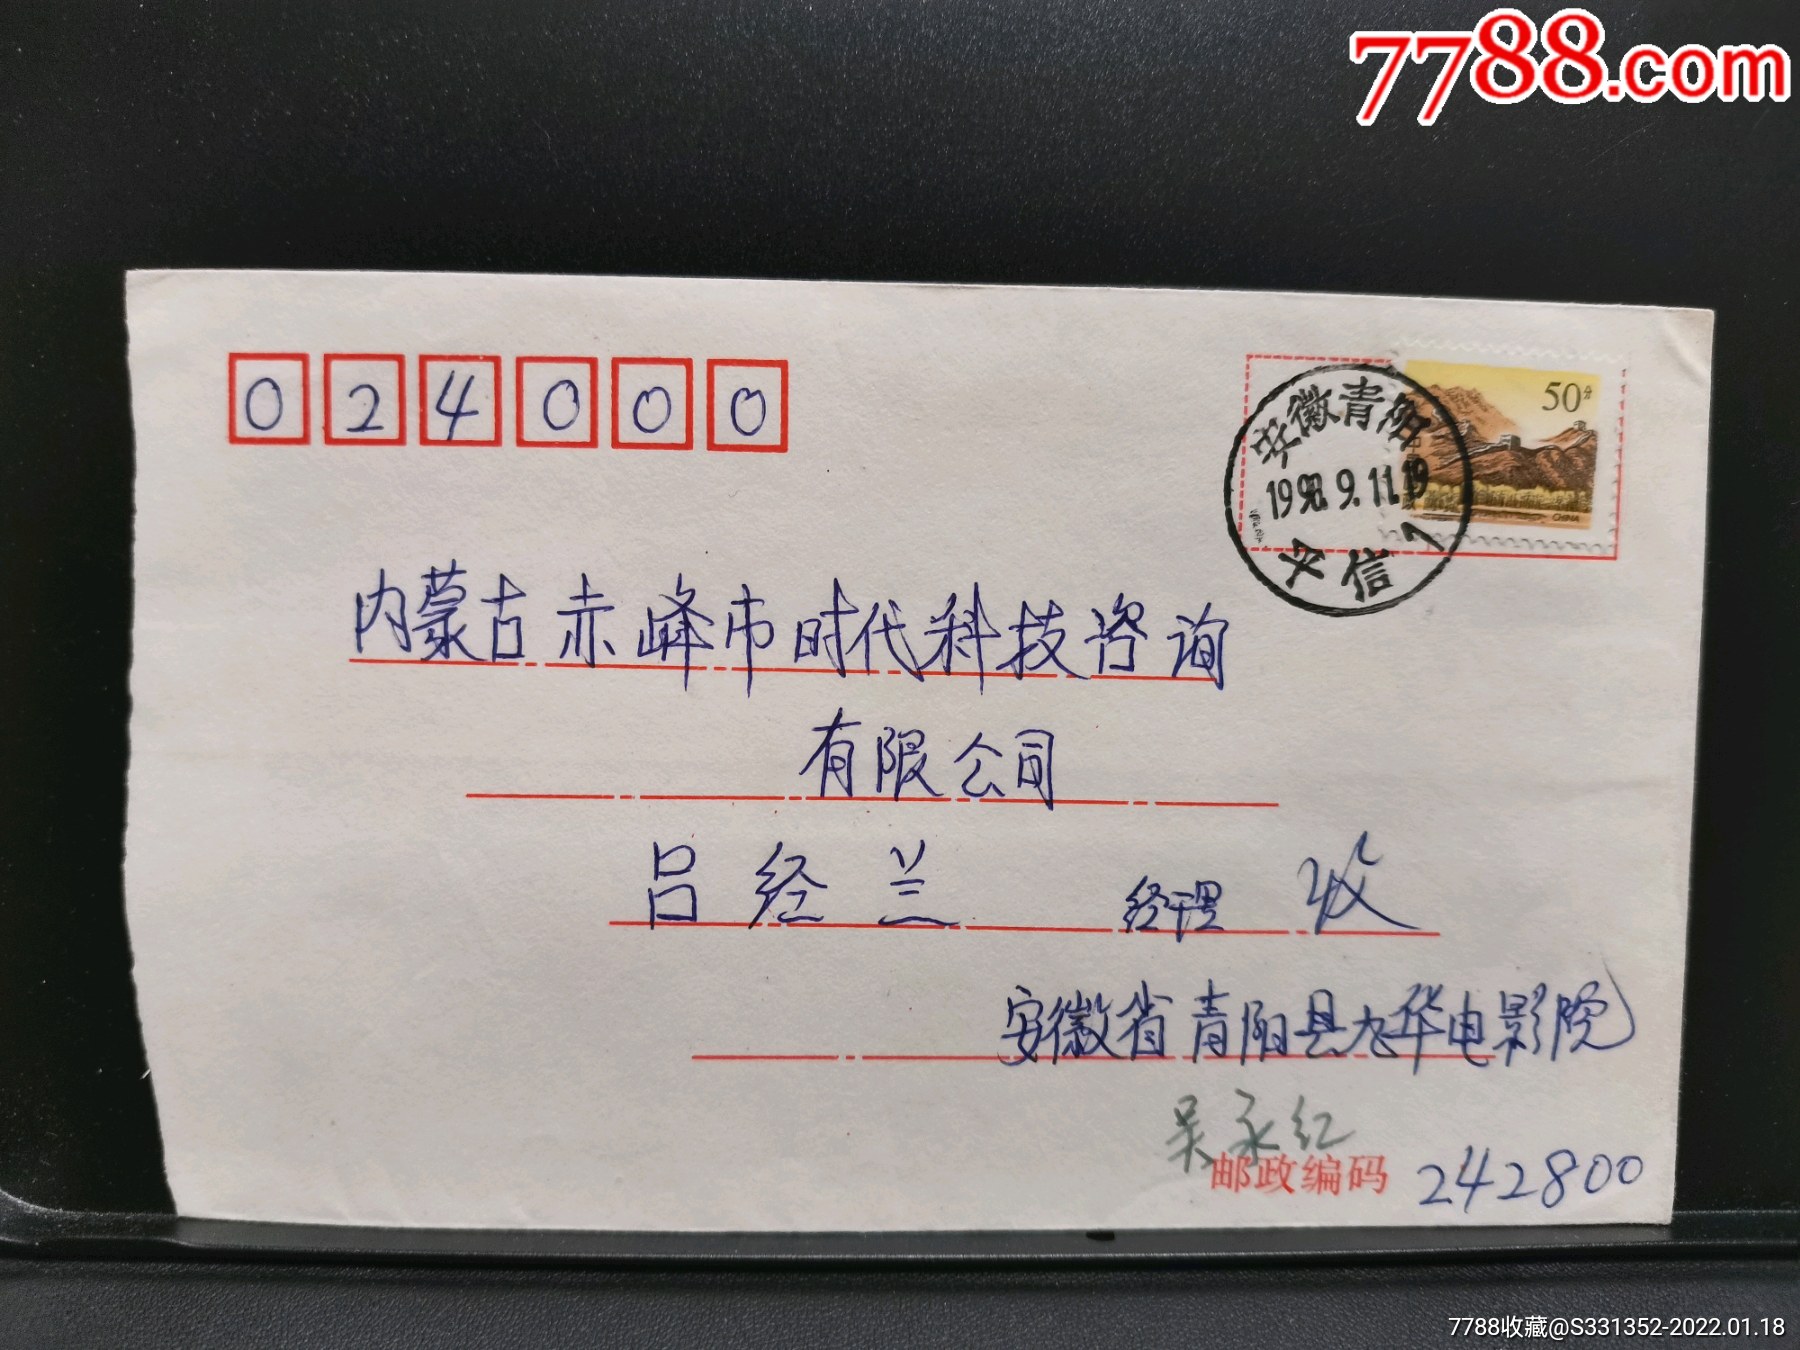 7788.com
024000
50分
CHINA
安徽青阳
1998.9.11.19
平信 7
内蒙古赤峰市时代科技咨询
有限公司
吕经兰 经理 收
安徽省青阳县九华电影院
吴永红
邮政编码 242800
7788收藏@S331352-2022.01.18